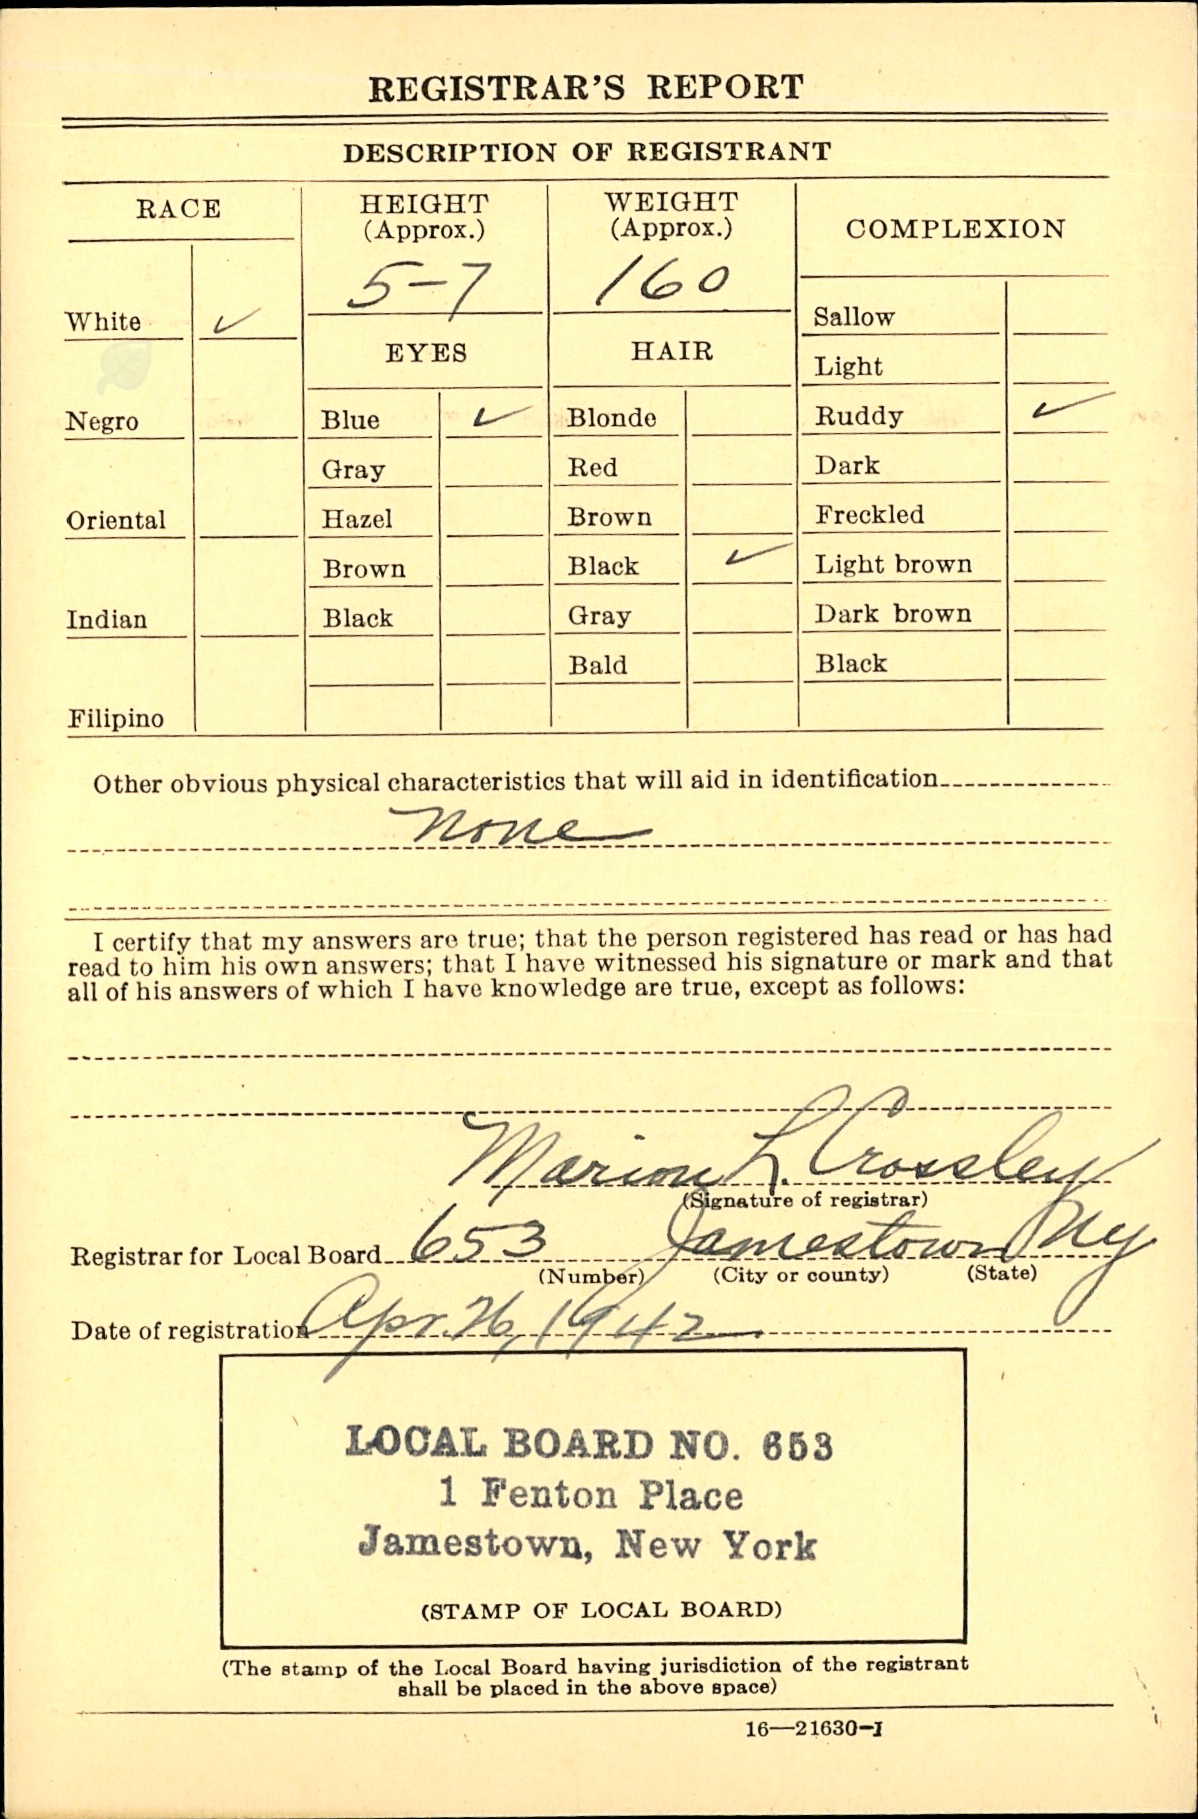 REGISTRAR'S REPORT
DESCRIPTION OF REGISTRANT
RACE
White ✓
Negro
Oriental
Indian
Filipino
HEIGHT
(Approx.)
5-7
EYES
Blue ✓
Gray
Hazel
Brown
Black
WEIGHT
(Approx.)
160
HAIR
Blonde
Red
Brown
Black ✓
Gray
Bald
COMPLEXION
Sallow
Light
Ruddy ✓
Dark
Freckled
Light brown
Dark brown
Black
Other obvious physical characteristics that will aid in identification
None
I certify that my answers are true; that the person registered has read or has had
read to him his own answers; that I have witnessed his signature or mark and that
all of his answers of which I have knowledge are true, except as follows:
Marion L. Crossley
(Signature of registrar)
Registrar for Local Board 653 Jamestown Ny
(Number) (City or county) (State)
Date of registration Apr. 26, 1942
LOCAL BOARD NO. 653
1 Fenton Place
Jamestown, New York
(STAMP OF LOCAL BOARD)
(The stamp of the Local Board having jurisdiction of the registrant
shall be placed in the above space)
16—21630-1